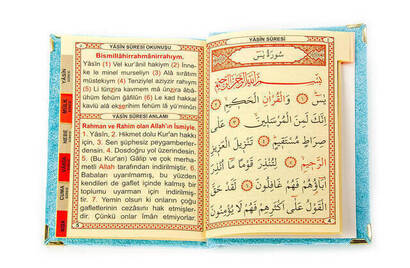 YÂSÎN SÛRESİ OKUNUŞU
Bismillâhirrahmânirrahym.
Yâsîn (1) Vel kur'ânil hakiym (2) İnne-
ke le minel murseliyn (3) Alâ sırâtım
müstekıym (4) Tenziylel aziyzir rahıym
(5) Li tünzira kavmem mâ ünzira âbâ-
ühüm fehüm gâfilûn (6) Le kad hakkal
kavlü alâ ekserihim fehüm lâ yü'minûn
YÂSÎN SÛRESİ ANLAMI
Rahman ve Rahim olan Allah'ın İsmiyle.
1. Yâsîn, 2. Hikmet dolu Kur'an hakkı
için, 3. Sen şüphesiz peygamberler-
densin. 4. Dosdoğru yol üzerindesin.
5. (Bu Kur'an) Gâlip ve çok merha-
metli Allah tarafından indirilmiştir. 6.
Babaları uyarılmamış, bu yüzden
kendileri de gaflet içinde kalmış bir
toplumu uyarman için indirilmiş-
tir. 7. Yemin olsun ki onların çoğu
gafletlerinin cezasını hak etmişler-
dir. Çünkü onlar îman etmiyorlar.
YÂSİN
MÜLK
NEBE
CUMA
YÂSÎN SÛRESİ
سُورَةُ يٰسٓ
بِسْمِ اللّٰهِ الرَّحْمٰنِ الرَّحِيمِ
يٰسٓ ﴿١﴾ وَالْقُرْاٰنِ الْحَكِيمِ ﴿٢﴾
اِنَّكَ لَمِنَ الْمُرْسَلِينَ ﴿٣﴾ عَلٰى
صِرَاطٍ مُسْتَقِيمٍ ﴿٤﴾ تَنْزِيلَ الْعَزِيزِ
الرَّحِيمِ ﴿٥﴾ لِتُنْذِرَ قَوْمًا مَٓا اُنْذِرَ
اٰبَٓاؤُهُمْ فَهُمْ غَافِلُونَ ﴿٦﴾ لَقَدْ حَقَّ
الْقَوْلُ عَلٰٓى اَكْثَرِهِمْ فَهُمْ لَا يُؤْمِنُونَ